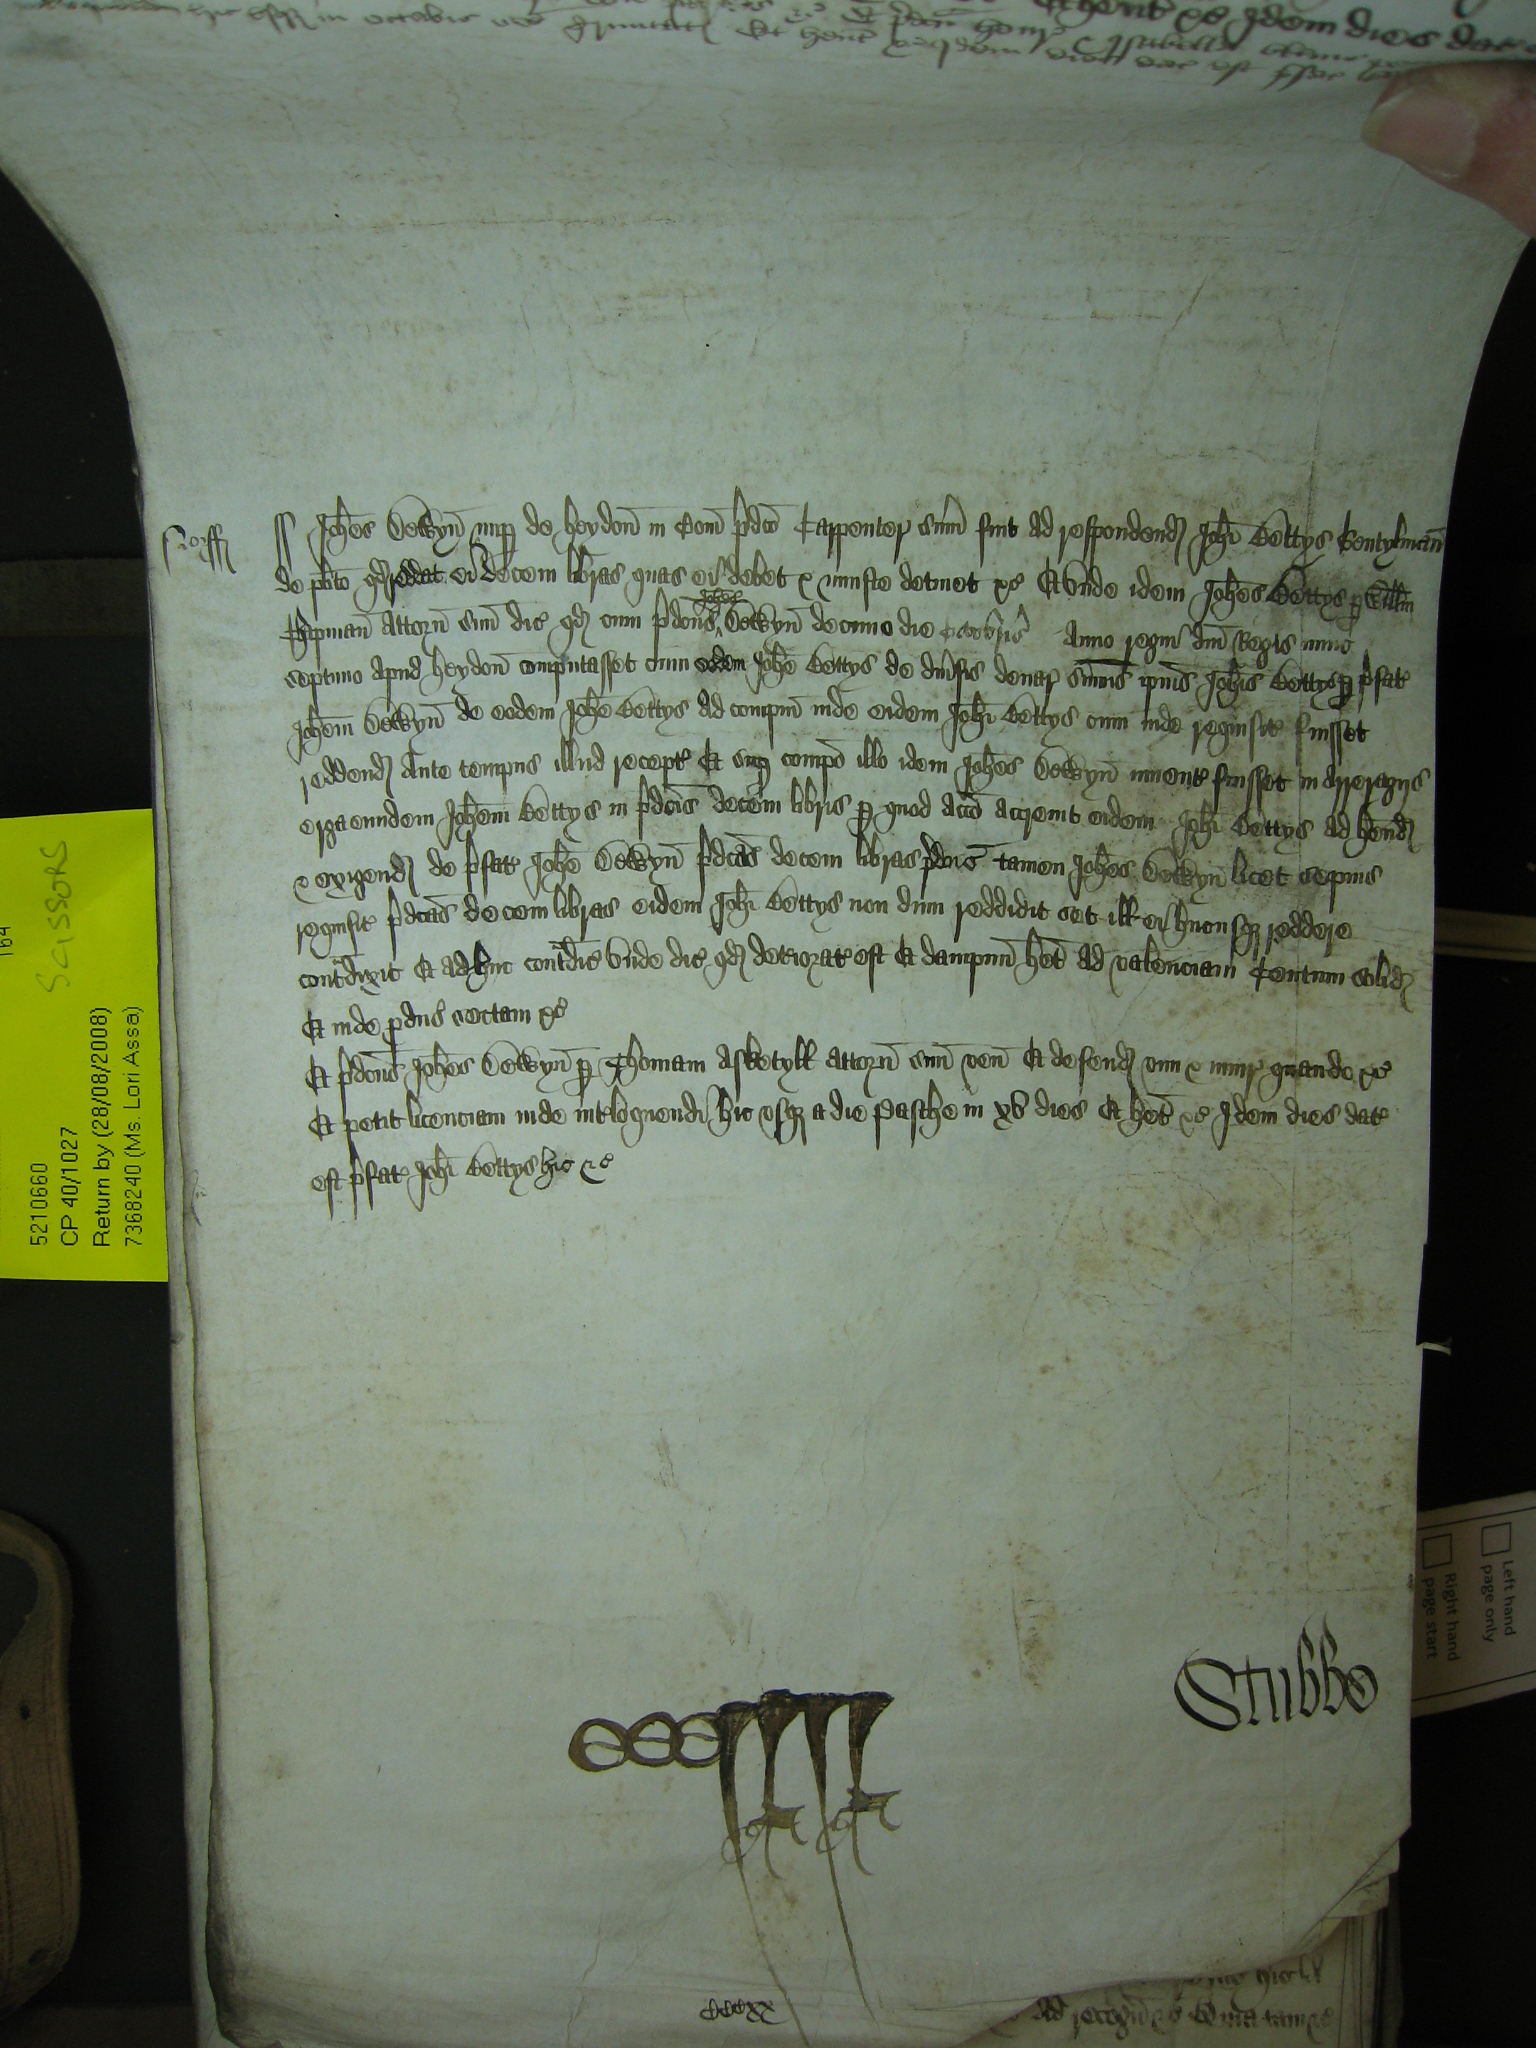 Idem dies dat
Norff
ss Johes Dewyn nup de heydon in Com pdco Carpenter sum fuit ad respondend Johi Bettys Gentylman
de plito qd reddat ei decem libras quas ei debet & iniuste detinet &c Et unde idem Johes Bettys p Willm
Chapman attorn suu dic qd cum pdcus Johes Dewyn decimo die Octobris Anno regni dni Regis nunc
septimo apud heydon computasset cum eodem Johe Bettys de divsis denar summis ipius Johis Bettys p pfat
Johem Dewyn de eodem Johe Bettys ad compm inde eidem Johi Bettys cum inde requisit fuisset
reddend ante tempus illud recept Et sup compo illo idem Johes Dewyn invent fuisset in arreragijs
erga eundem Johem Bettys in pdcis decem libris p quod acco accrevit eidem Johi Bettys ad hend
& exigend de pfat Johe Dewyn pdcas decem libras pdcus tamen Johes Dewyn licet sepius
requisit pdcas decem libras eidem Johi Bettys non dum reddidit set ill ei hucusq reddere
contdixit Et adhuc contdic unde dic qd deteriorat est Et dampnu het ad valenciam Centum solid
Et inde pduc sectam &c
Et pdcus Johes Dewyn p Thomam Asketyll attorn suu ven Et defend vim & iniur quando &c
Et petit licenciam inde intloquendi hic usq a die Pasche in xv dies Et het &c Idem dies dat
est pfat Johi Bettys hic &c
Stubbs
cccxx
164
SCISSORS
5210660
CP 40/1027
Return by (28/08/2008)
7368240 (Ms. Lori Assa)
Left hand
page only
Right hand
page start